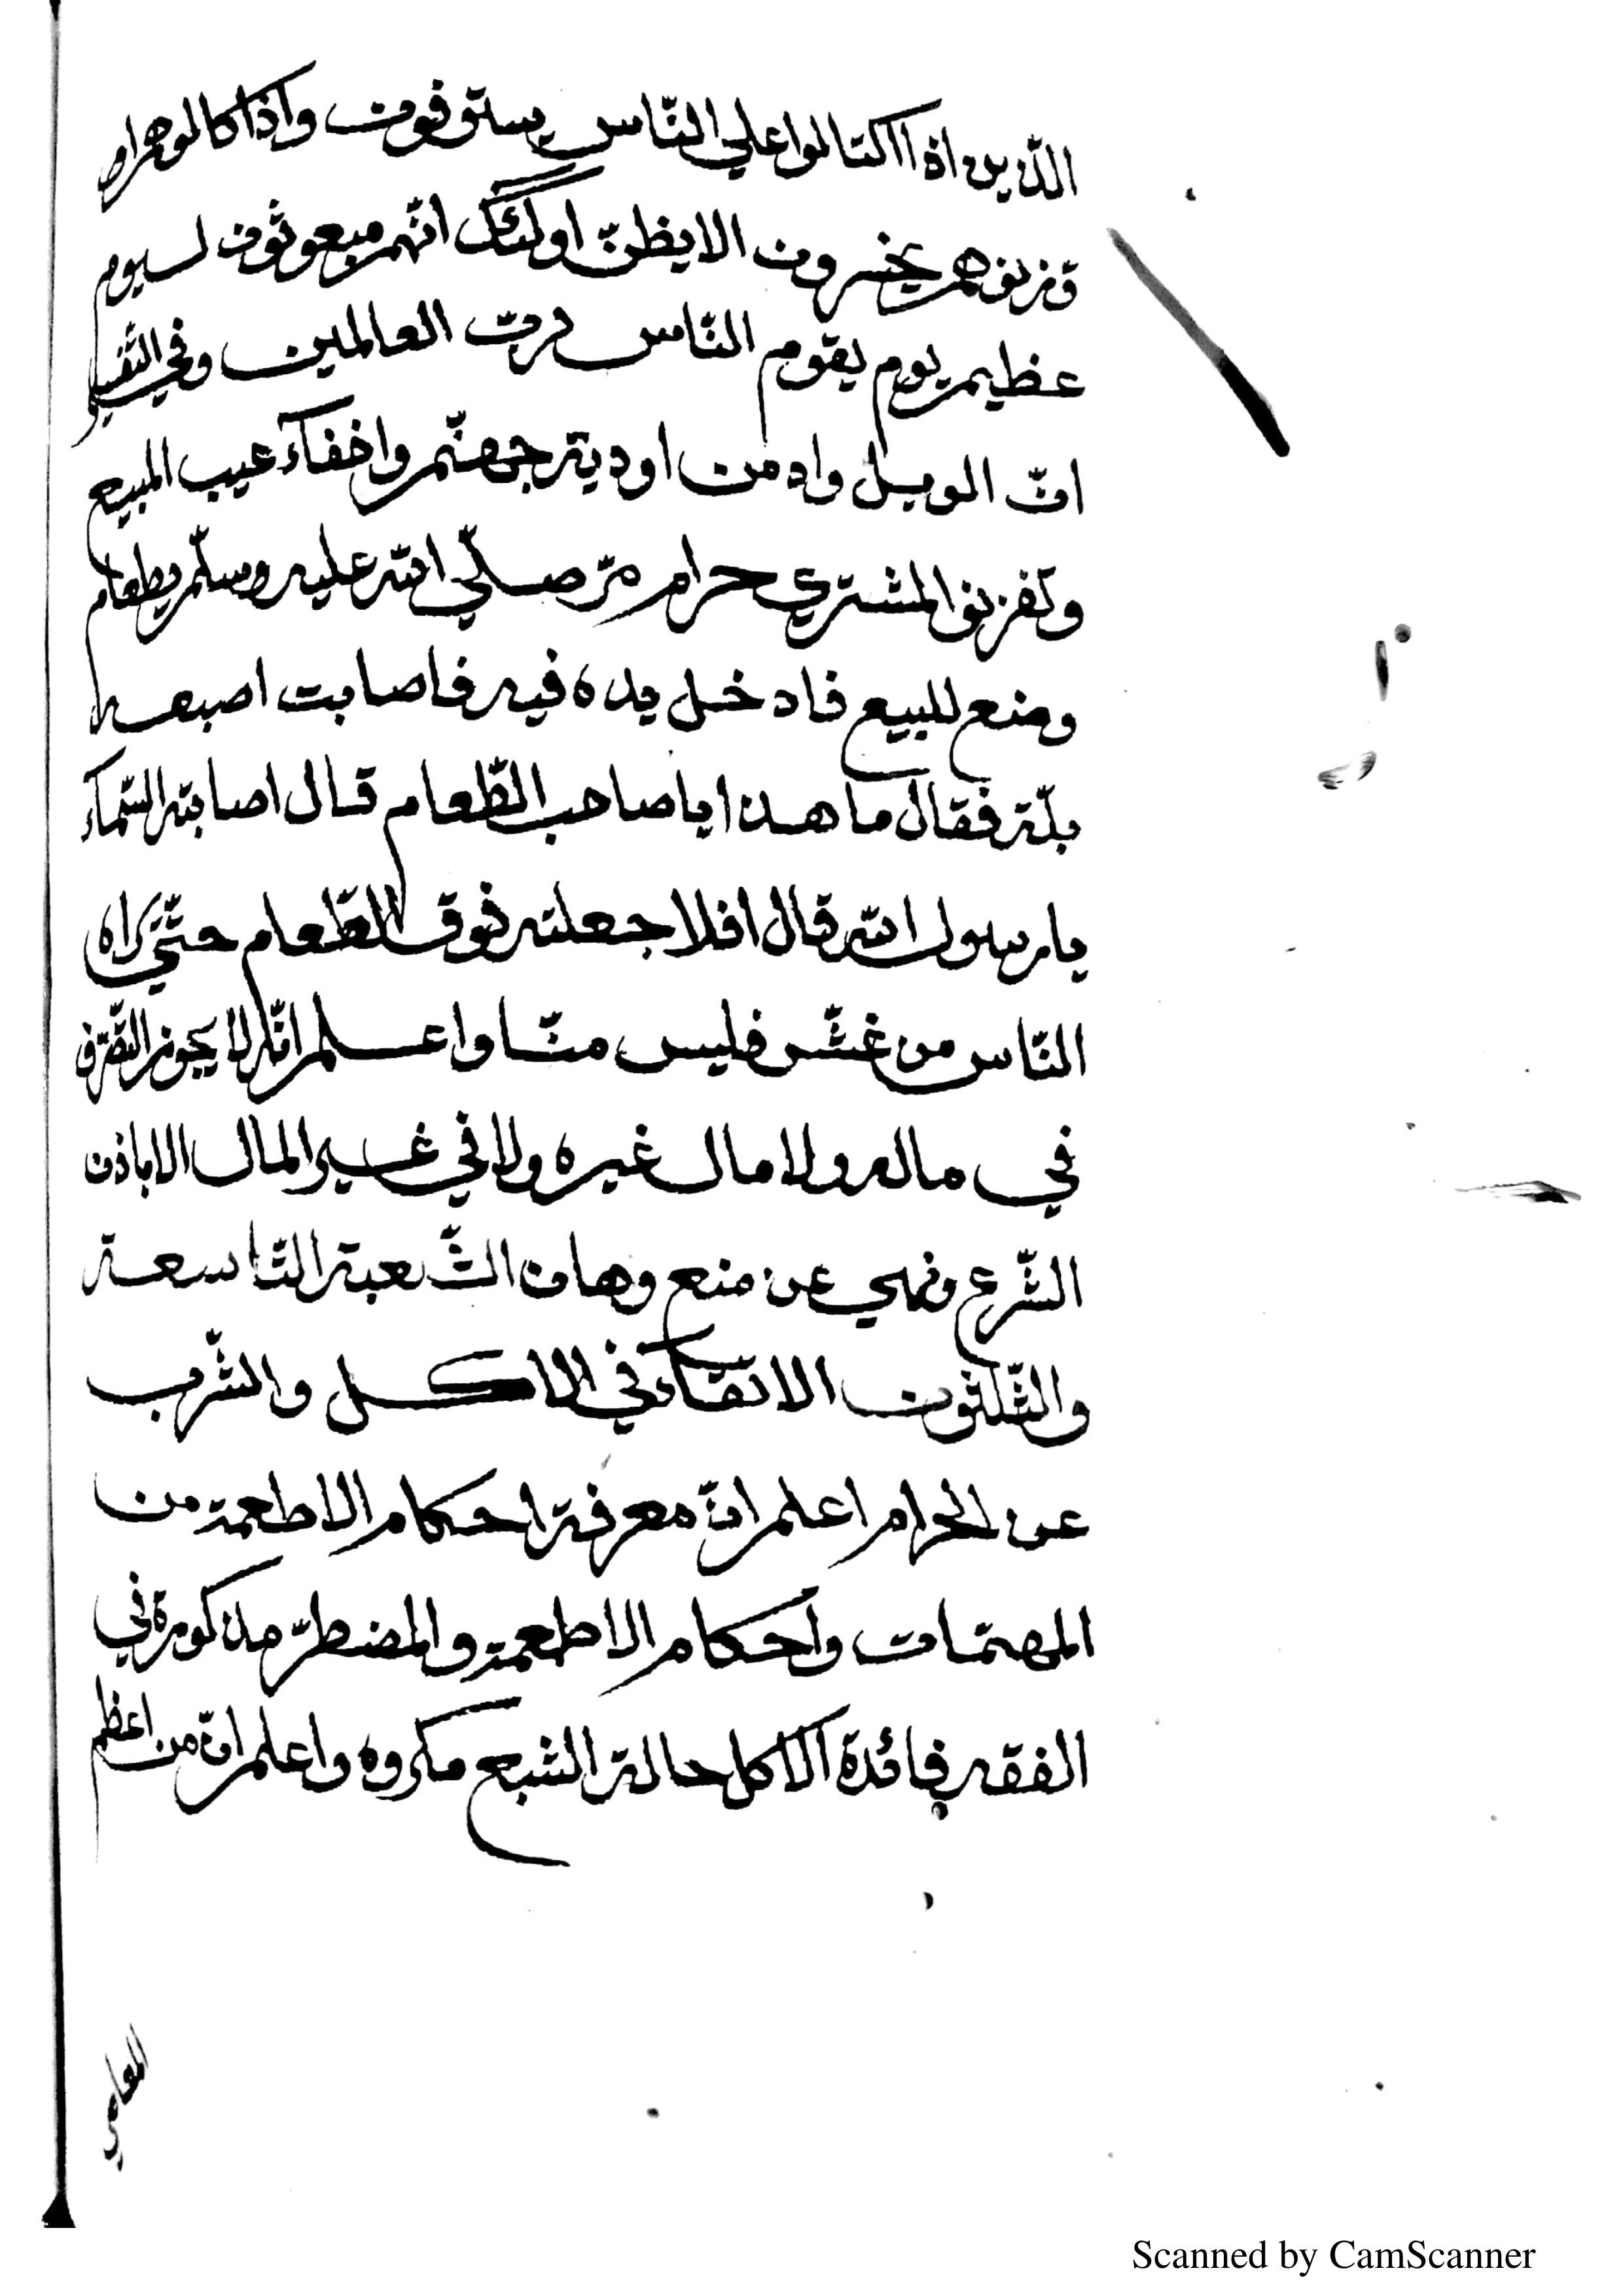 الذين اذا اكتالوا علي النّاس يستوفون واذا كالوهم او
وزنوهم يخسرون الا يظنّ اولئك انّهم مبعوثون ليوم
عظيم يوم يقوم النّاس لربّ العالمين وفي التّفسير
انّ الويل واد من اودية جهنّم واخفآء عيب المبيع
وتغرير المشتري حرام مرّ صلّي الله عليه وسلّم بطعام
وضع للبيع فادخل يده فيه فاصابت اصبعه
بلّة فقال ما هذا يا صاحب الطّعام قال اصابته السّمآء
يا رسول الله قال افلا جعلته فوق الطّعام حتّي يراه
النّاس من غشّ فليس منّا واعلم انّه لا يجوز التّصرّف
في ماله ولا مال غيره ولا في غير المال الا باذن
الشّرع ونهي عن منع وهات الشّعبة التّاسعة
والثّلثون الاتقآء في الاكل والشّرب
عن الحرام اعلم انّ معرفة احكام الاطعمة من
المهمّات واحكام الاطعمة والمضطرّ مذكورة في
الفقه فائدة الاكل حالة الشبع مكروه واعلم انّ من اعظم
Scanned by CamScanner